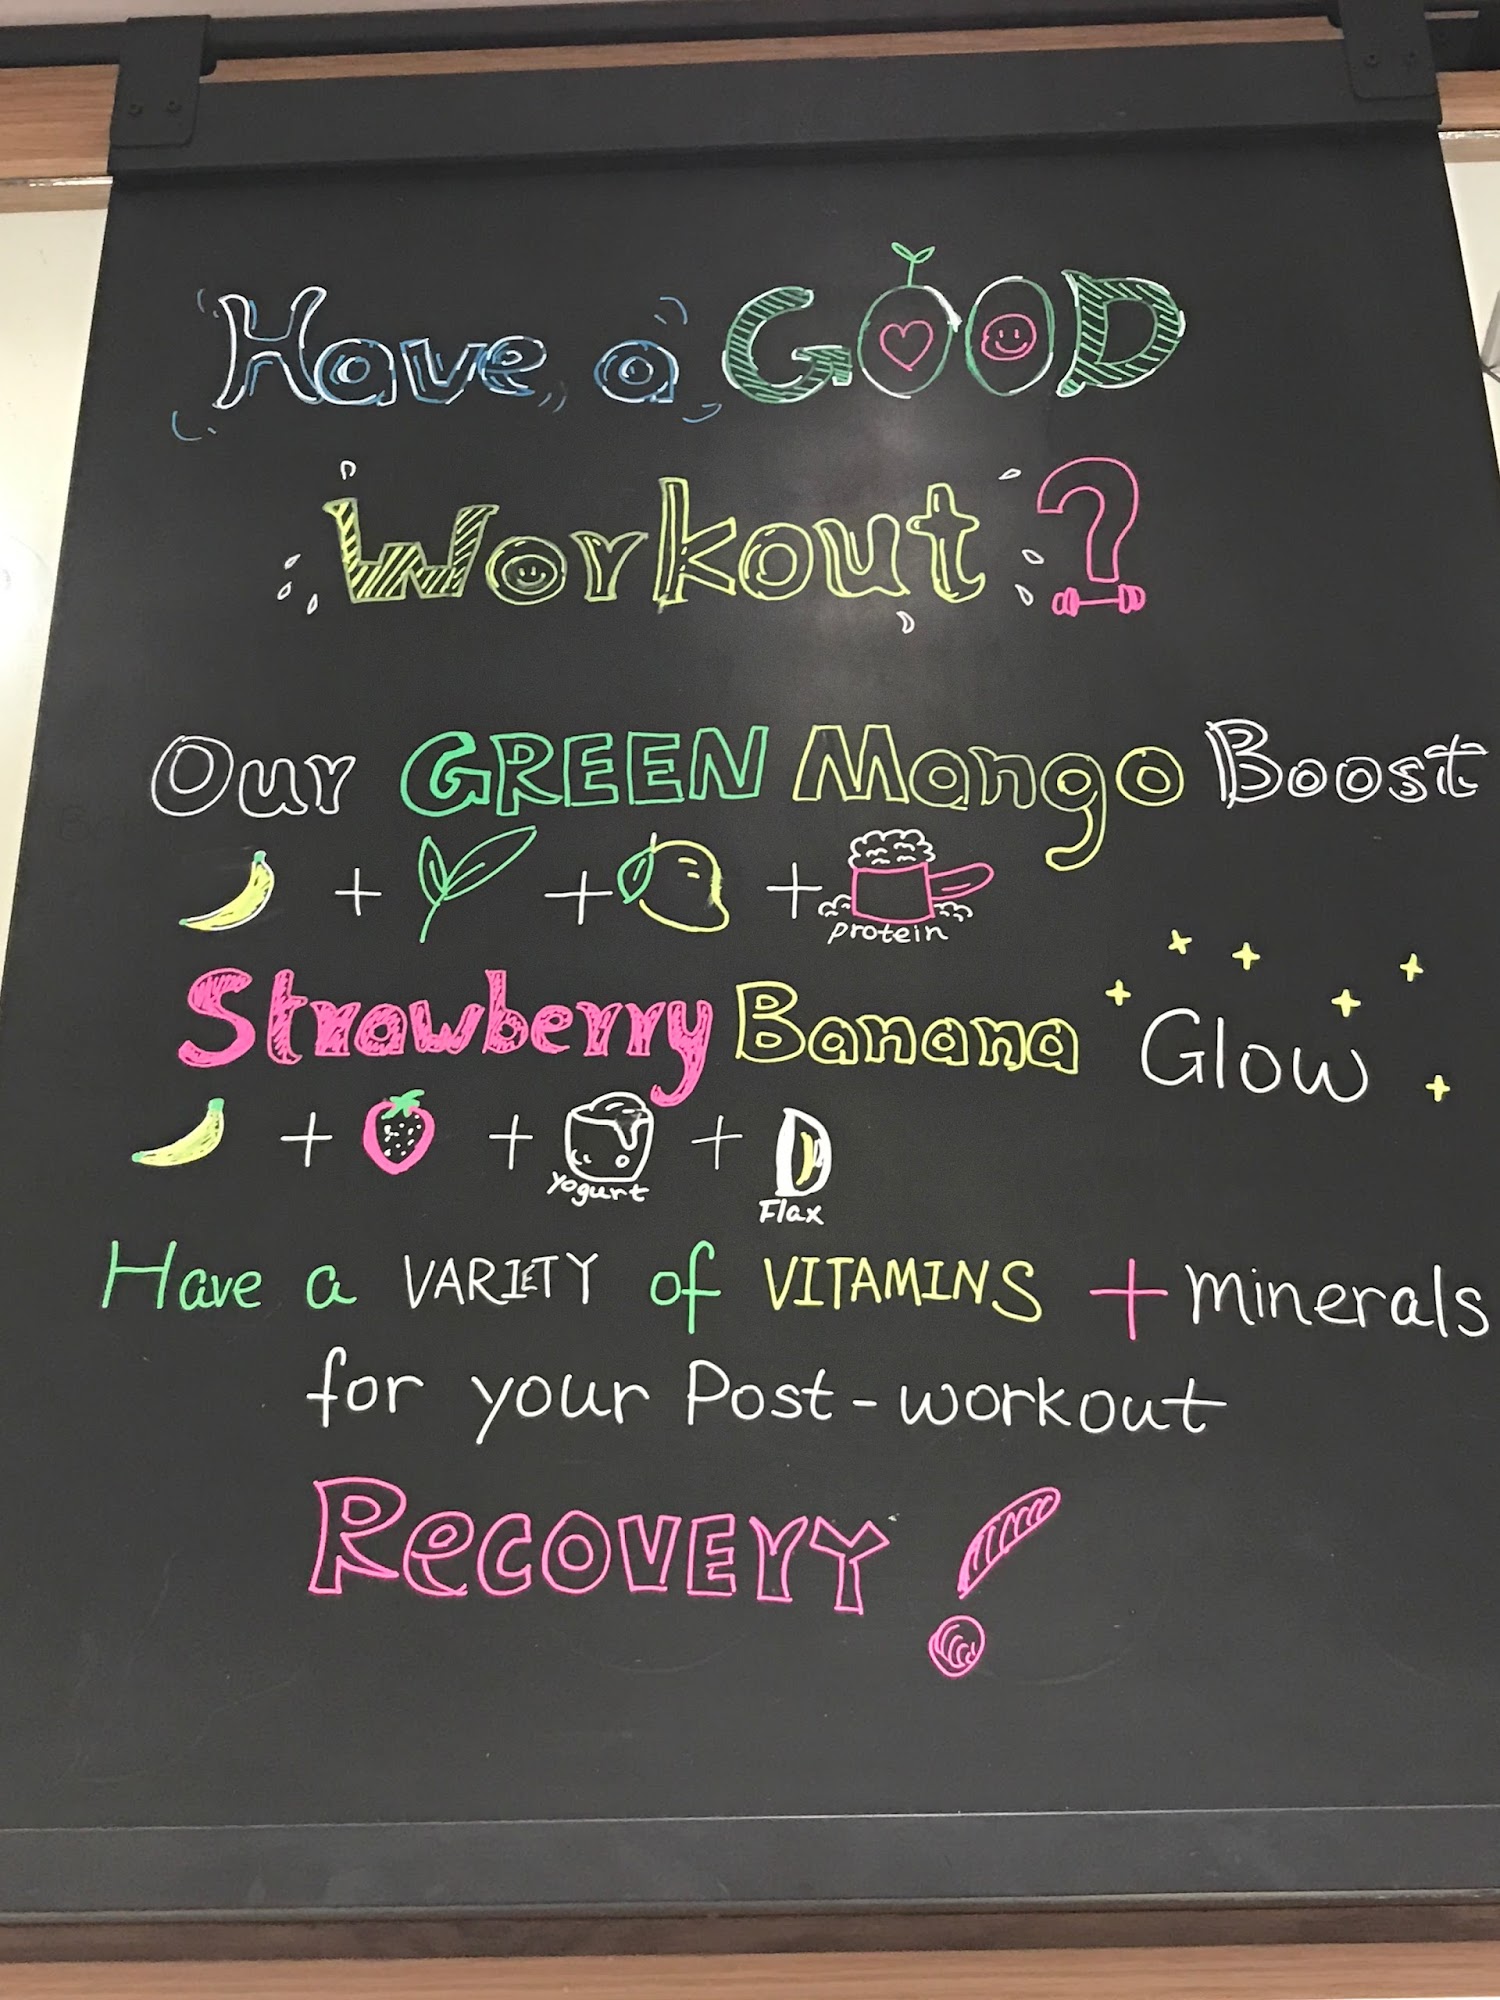 Have a GOOD
Workout?
Our GREEN Mango Boost
+ + +
protein
Strawberry Banana Glow
+ + +
Yogurt
Flax
Have a VARIETY of VITAMINS + minerals
for your Post-workout
RECOVERY!